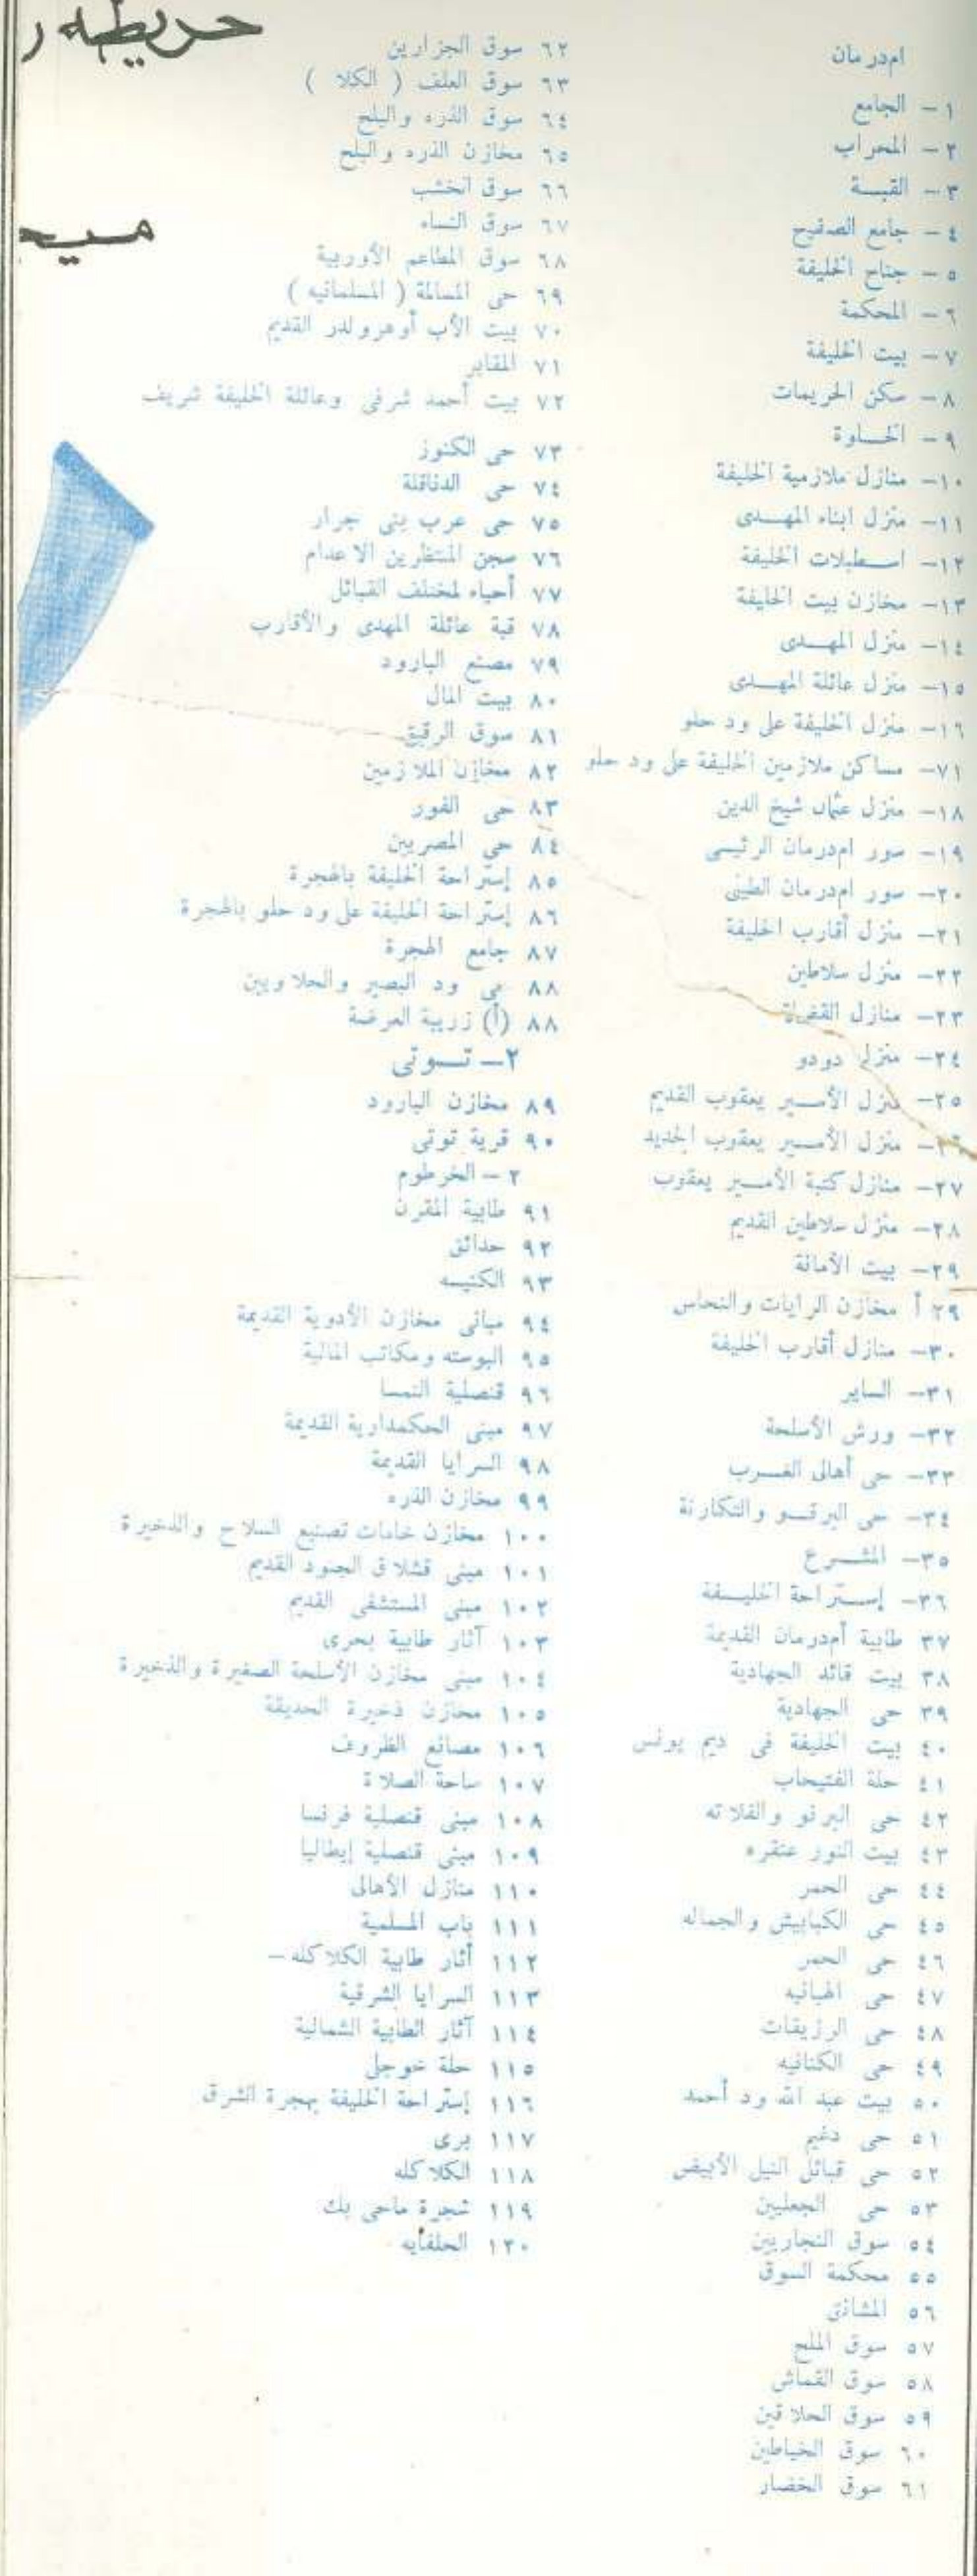 خريطة
امدرمان
١- الجامع
٢- المحراب
٣- القبة
٤- جامع الصفيح
٥- جناح الخليفة
٦- المحكمة
٧- بيت الخليفة
٨- سكن الحريمات
٩- الخلوة
١٠- منازل ملازمية الخليفة
١١- منزل ابناء المهدى
١٢- اسطبلات الخليفة
١٣- مخازن بيت الخليفة
١٤- منزل المهدى
١٥- منزل عائلة المهدى
١٦- منزل الخليفة على ود حلو
٧١- مساكن ملازمين الخليفة على ود حلو
١٨- منزل عثمان شيخ الدين
١٩- سور امدرمان الرئيسى
٢٠- سور امدرمان الطينى
٢١- منزل أقارب الخليفة
٢٢- منزل سلاطين
٢٣- منازل القضاة
٢٤- منزل دودو
٢٥- منزل الأمير يعقوب القديم
٢٦- منزل الأمير يعقوب الجديد
٢٧- منازل كتبة الأمير يعقوب
٢٨- منزل سلاطين القديم
٢٩- بيت الأمانة
٢٩ أ مخازن الرايات والنحاس
٣٠- منازل أقارب الخليفة
٣١- الساير
٣٢- ورش الأسلحة
٣٣- حى أهالى الغرب
٣٤- حى البرقو والتكارنة
٣٥- المشرع
٣٦- إستراحة الخليفة
٣٧ طابية أمدرمان القديمة
٣٨ بيت قائد الجهادية
٣٩ حى الجهادية
٤٠ بيت الخليفة فى ديم يونس
٤١ حلة الفتيحاب
٤٢ حى البرنو والفلاته
٤٣ بيت النور عنقره
٤٤ حى الحمر
٤٥ حى الكبابيش والجماله
٤٦ حى الحمر
٤٧ حى الهبانيه
٤٨ حى الرزيقات
٤٩ حى الكنانيه
٥٠ بيت عبد الله ود أحمد
٥١ حى دغيم
٥٢ حى قبائل النيل الأبيض
٥٣ حى الجعليين
٥٤ سوق النجاريين
٥٥ محكمة السوق
٥٦ المشانق
٥٧ سوق الملح
٥٨ سوق القماش
٥٩ سوق الحلاقين
٦٠ سوق الخياطين
٦١ سوق الخضار
٦٢ سوق الجزارين
٦٣ سوق العلف ( الكلا )
٦٤ سوق الذره والبلح
٦٥ مخازن الذره والبلح
٦٦ سوق الخشب
٦٧ سوق النساء
٦٨ سوق المطاعم الأوربية
٦٩ حى المسالمة ( المسلمانيه )
٧٠ بيت الأب أوهرولدر القديم
٧١ المقابر
٧٢ بيت أحمد شرفى وعائلة الخليفة شريف
٧٣ حى الكنوز
٧٤ حى الدناقلة
٧٥ حى عرب بنى جرار
٧٦ سجن المنتظرين الاعدام
٧٧ أحياء لمختلف القبائل
٧٨ قبة عائلة المهدى والأقارب
٧٩ مصنع البارود
٨٠ بيت المال
٨١ سوق الرقيق
٨٢ مخازن الملازمين
٨٣ حى الفور
٨٤ حى المصريين
٨٥ إستراحة الخليفة بالهجرة
٨٦ إستراحة الخليفة على ود حلو بالهجرة
٨٧ جامع الهجرة
٨٨ حى ود البصير والحلاويين
٨٨ (أ) زريبة العرضة
٢- تــوتى
٨٩ مخازن البارود
٩٠ قرية توتى
٢- الخرطوم
٩١ طابية المقرن
٩٢ حدائق
٩٣ الكنيسه
٩٤ مبانى مخازن الأدوية القديمة
٩٥ البوسته ومكاتب المالية
٩٦ قنصلية النمسا
٩٧ مبنى الحكمدارية القديمة
٩٨ السرايا القديمة
٩٩ مخازن الذره
١٠٠ مخازن خامات تصنيع السلاح والذخيرة
١٠١ مبنى قشلاق الجنود القديم
١٠٢ مبنى المستشفى القديم
١٠٣ آثار طابية بحرى
١٠٤ مبنى مخازن الأسلحة الصغيرة والذخيرة
١٠٥ مخازن ذخيرة الحديقة
١٠٦ مصانع الظروف
١٠٧ ساحة الصلاة
١٠٨ مبنى قنصلية فرنسا
١٠٩ مبنى قنصلية إيطاليا
١١٠ منازل الأهالى
١١١ باب المسلمية
١١٢ أثار طابية الكلاكله -
١١٣ السرايا الشرقية
١١٤ آثار الطابية الشمالية
١١٥ حلة خوجلى
١١٦ إستراحة الخليفة بهجرة الشرق
١١٧ برى
١١٨ الكلاكله
١١٩ شجرة ماحى بك
١٢٠ الحلفايه